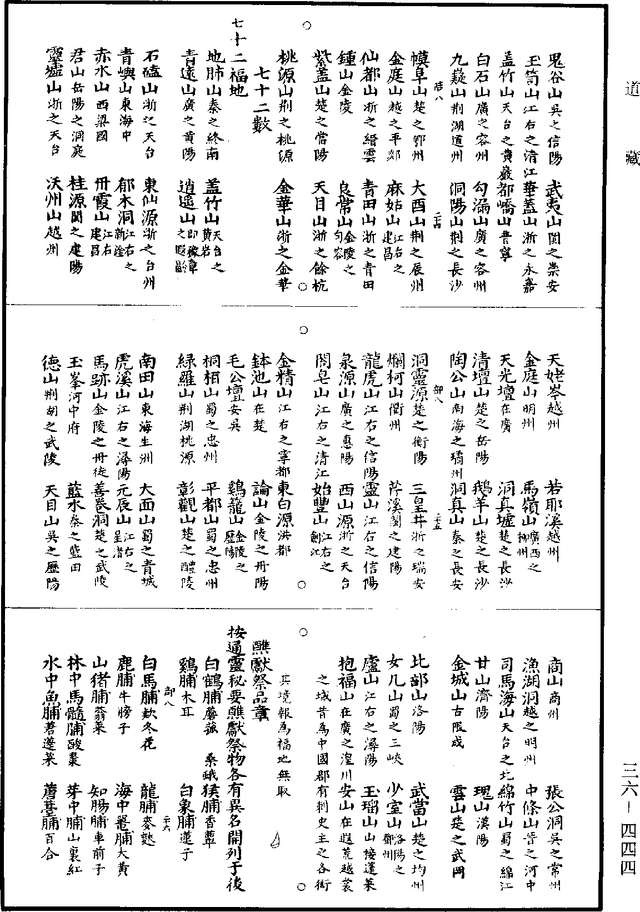 道藏
鬼谷山吳之信陽 武夷山閩之崇安
玉笥山江右之清江 華蓋山浙之永嘉
蓋竹山天台之黄巖 都嶠山普寧
白石山廣之容州 勾漏山廣之容州
九嶷山荆湖道州 洞陽山荆之長沙
幙阜山楚之鄂州 大酉山荆之辰州
金庭山越之平郊 麻姑山江右之建昌
仙都山浙之縉雲 青田山浙之青田
鍾山金陵 良常山金陵之句容
紫蓋山楚之當陽 天目山浙之餘杭
桃源山荆之桃源 金華山浙之金華
七十二數
七十二福地
地肺山秦之終南 蓋竹山天台之黄岩
青遠山廣之黄陽 逍遥山
石磕山浙之天台 東仙源浙之台州
青嶼山東海中 郁木洞江右之新淦
赤水山西梁國 丹霞山江右建昌
君山岳陽之洞庭 桂源閩之建陽
靈墟山浙之天台 沃州山越州
天姥岑越州 若耶溪越州
金庭山明州 馬嶺山廣西之柳州
天光壇在廣 洞真墟楚之長沙
清壇山楚之岳陽 鵝羊山楚之長沙
陶公山南海之瑀州 洞真山秦之長安
洞靈源楚之衡陽 三皇井浙之瑞安
爛柯山衢州 芹溪閩之建陽
龍虎山江右之信陽 靈山江右之信陽
泉源山廣之惠陽 西山源浙之天台
閤皂山江右之清江 始豐山江右之劍江
金精山江右之寧都 東白源洪都
鉢池山在楚 論山金陵之丹陽
毛公壇安吳 鷄籠山金陵之歷陽
桐栢山蜀之忠州 平都山蜀之忠州
緑羅山荆湖桃源 彰觀山楚之醴陵
南田山東海生洲 大面山蜀之青城
虎溪山江右之潯陽 元辰山江右之星渚
馬跡山金陵之丹徒 善卷洞楚之武陵
玉峯河中府 藍水秦之藍田
德山荆胡之武陵 天目山吳之歷陽
商山商州 張公洞吳之常州
漁湖洞越之明州 中條山晋之河中
司馬海山天台之北 綿竹山蜀之綿江
甘山濟陽 瑰山漢陽
金城山古限戍 雲山楚之武岡
北邙山洛陽 武當山楚之均州
女几山蜀之三峽 少室山洛陽之鄭州
廬山江右之潯陽 玉瑠山山接蓬萊
抱福山在廣之湟川 安山在遐荒越裳
之域昔爲中國郡有刺史主之各銜
其境報爲福地無取
醮獻祭品章
按通靈秘要醮獻祭物各有異名開列于後
白鶴脯蘑菰 猨脯香蕈
鷄脯木耳 白象脯蓮子
白馬脯欸冬花 龍脯麥麩
鹿脯牛膀子 海中鼍脯大黄
山猪脯蓊菜 知腸脯車前子
林中馬髓脯酸棗 芽中脯山裏紅
水中魚脯菪蓬菜 蘑菩脯百合
三六—四四四